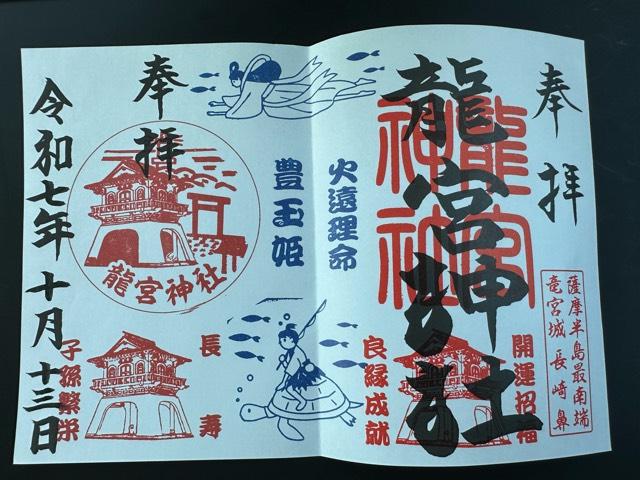 奉拝
龍宮神社
龍宮神社
薩摩半島最南端
竜宮城 長崎鼻
開運招福
良縁成就
火遠理命
豊玉姫
奉拝
龍宮神社
長寿
子孫繁栄
令和七年十月十三日